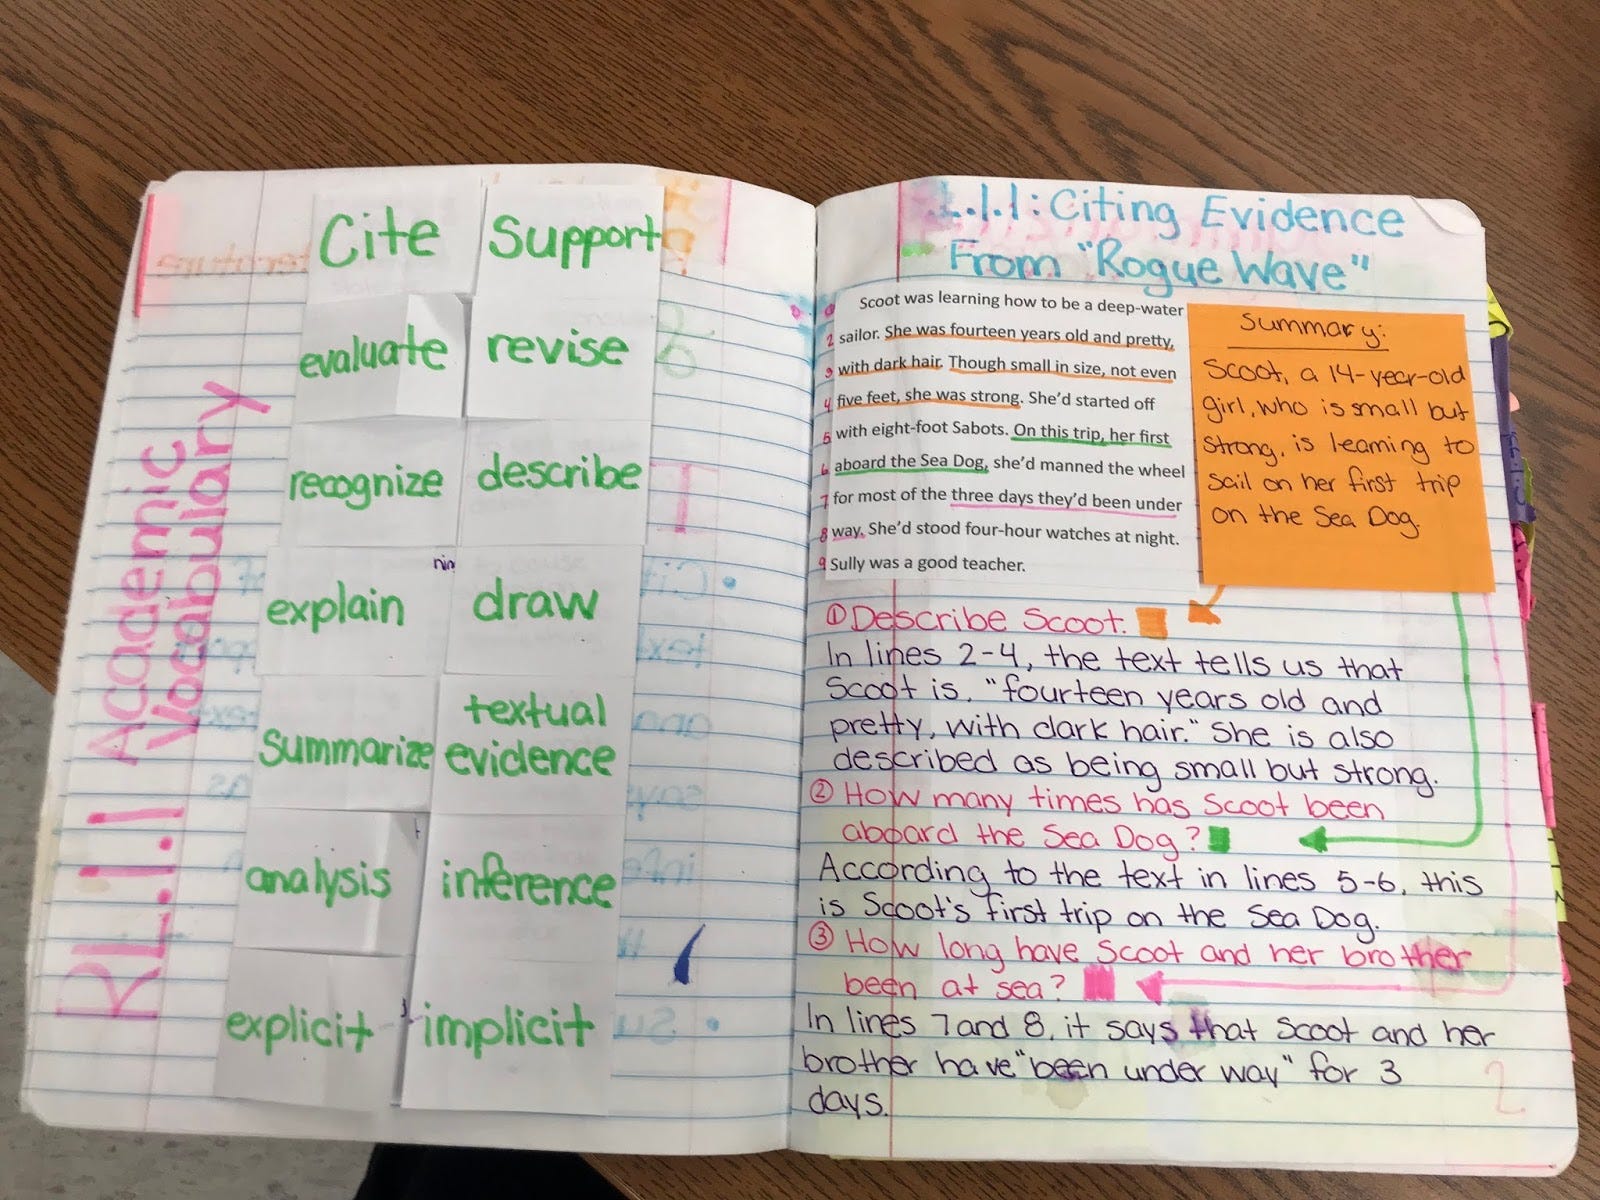 RL.1.1 Academic
Vocabulary
Cite Support
evaluate revise
recognize describe
explain draw
Summarize textual
evidence
analysis inference
explicit implicit
L.1.1: Citing Evidence
From "Rogue Wave"
Scoot was learning how to be a deep-water
2 sailor. She was fourteen years old and pretty,
3 with dark hair. Though small in size, not even
4 five feet, she was strong. She'd started off
5 with eight-foot Sabots. On this trip, her first
6 aboard the Sea Dog, she'd manned the wheel
7 for most of the three days they'd been under
8 way. She'd stood four-hour watches at night.
9 Sully was a good teacher.
Summary:
Scoot, a 14-year-old
girl, who is small but
strong, is learning to
sail on her first trip
on the Sea Dog.
① Describe Scoot.
In lines 2-4, the text tells us that
Scoot is, "fourteen years old and
pretty, with dark hair." She is also
described as being small but strong.
② How many times has Scoot been
aboard the Sea Dog?
According to the text in lines 5-6, this
is Scoot's first trip on the Sea Dog.
③ How long have Scoot and her brother
been at sea?
In lines 7 and 8, it says that Scoot and her
brother have "been under way" for 3
days.
2